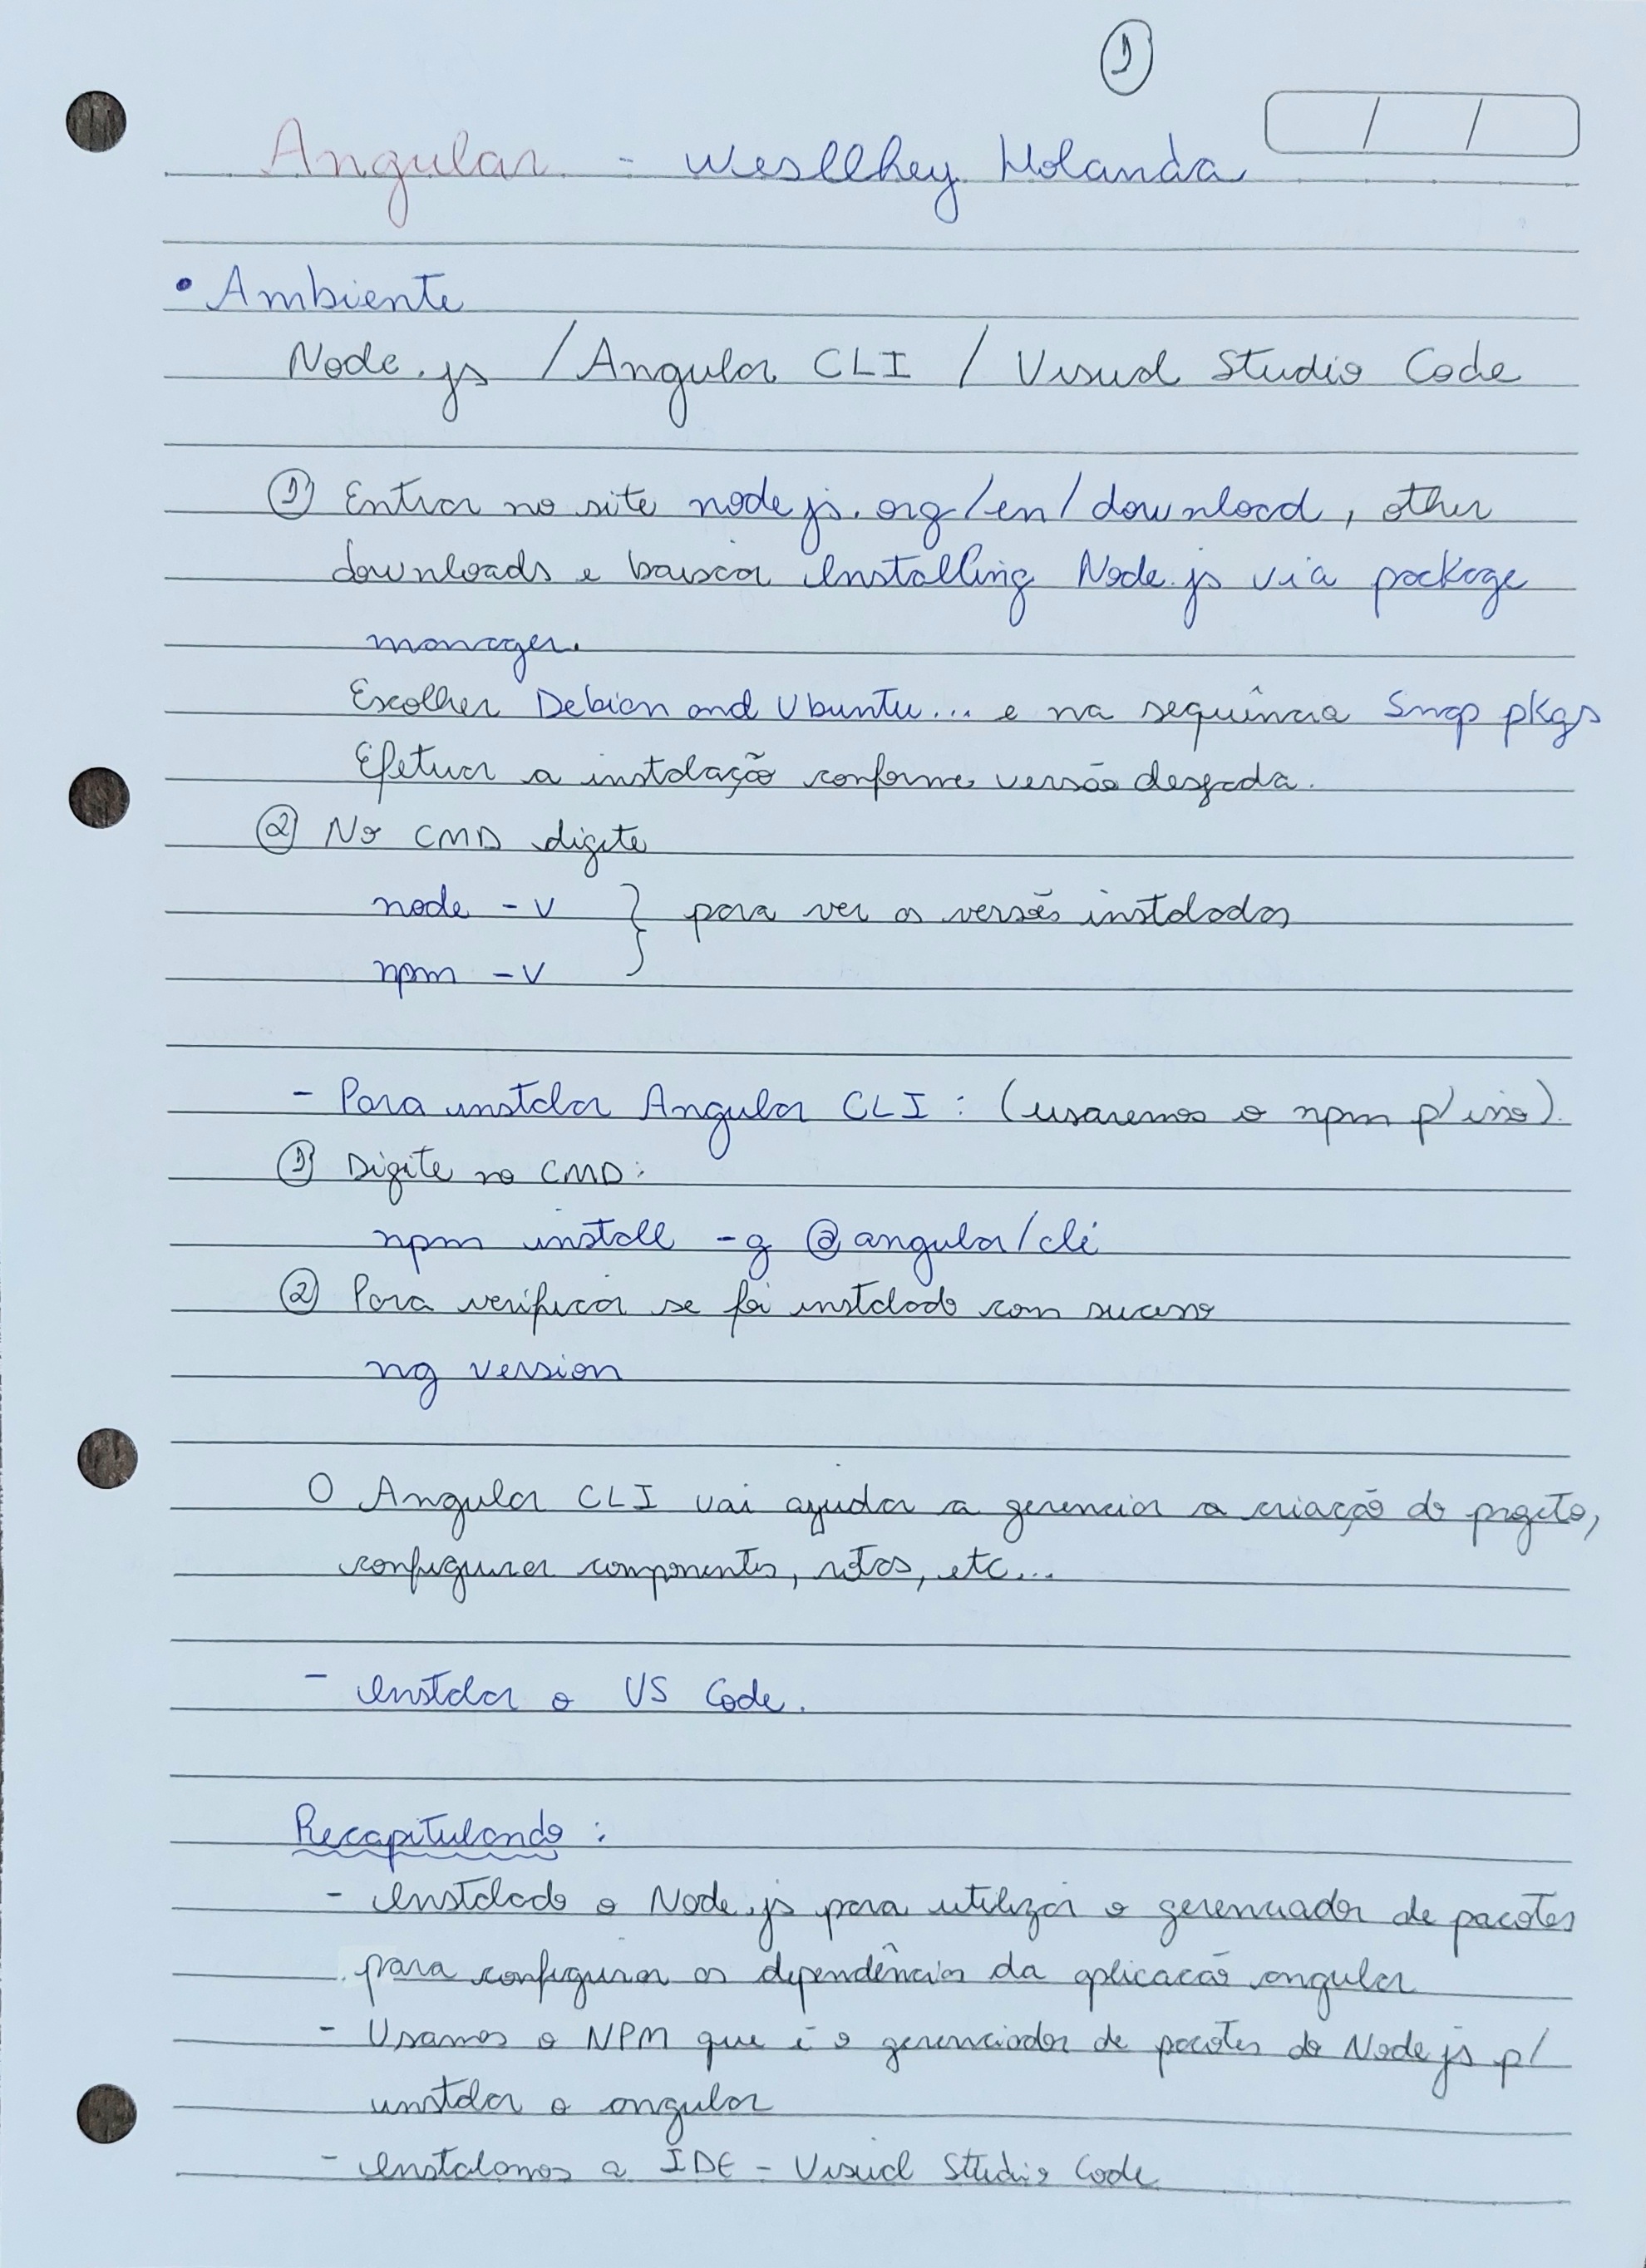 1
Angular - Wesllhey Holanda
• Ambiente
Node.js / Angular CLI / Visual Studio Code
① Entrar no site nodejs.org/en/download, other
downloads e buscar Installing Node.js via package
manager.
Escolher Debian and Ubuntu... e na sequência Snap pkgs
Efetuar a instalação conforme versão desejada.
② No CMD digite
node -v } para ver as versões instaladas
npm -v
- Para instalar Angular CLI: (usaremos o npm p/ isso).
① Digite no CMD:
npm install -g @angular/cli
② Para verificar se foi instalado com sucesso
ng version
O Angular CLI vai ajudar a gerenciar a criação do projeto,
configurar componentes, rotas, etc...
- Instalar o VS Code.
Recapitulando:
- Instalado o Node.js para utilizar o gerenciador de pacotes
para configurar as dependências da aplicação angular
- Usamos o NPM que é o gerenciador de pacotes do Node js p/
instalar o angular
- Instalamos a IDE - Visual Studio Code